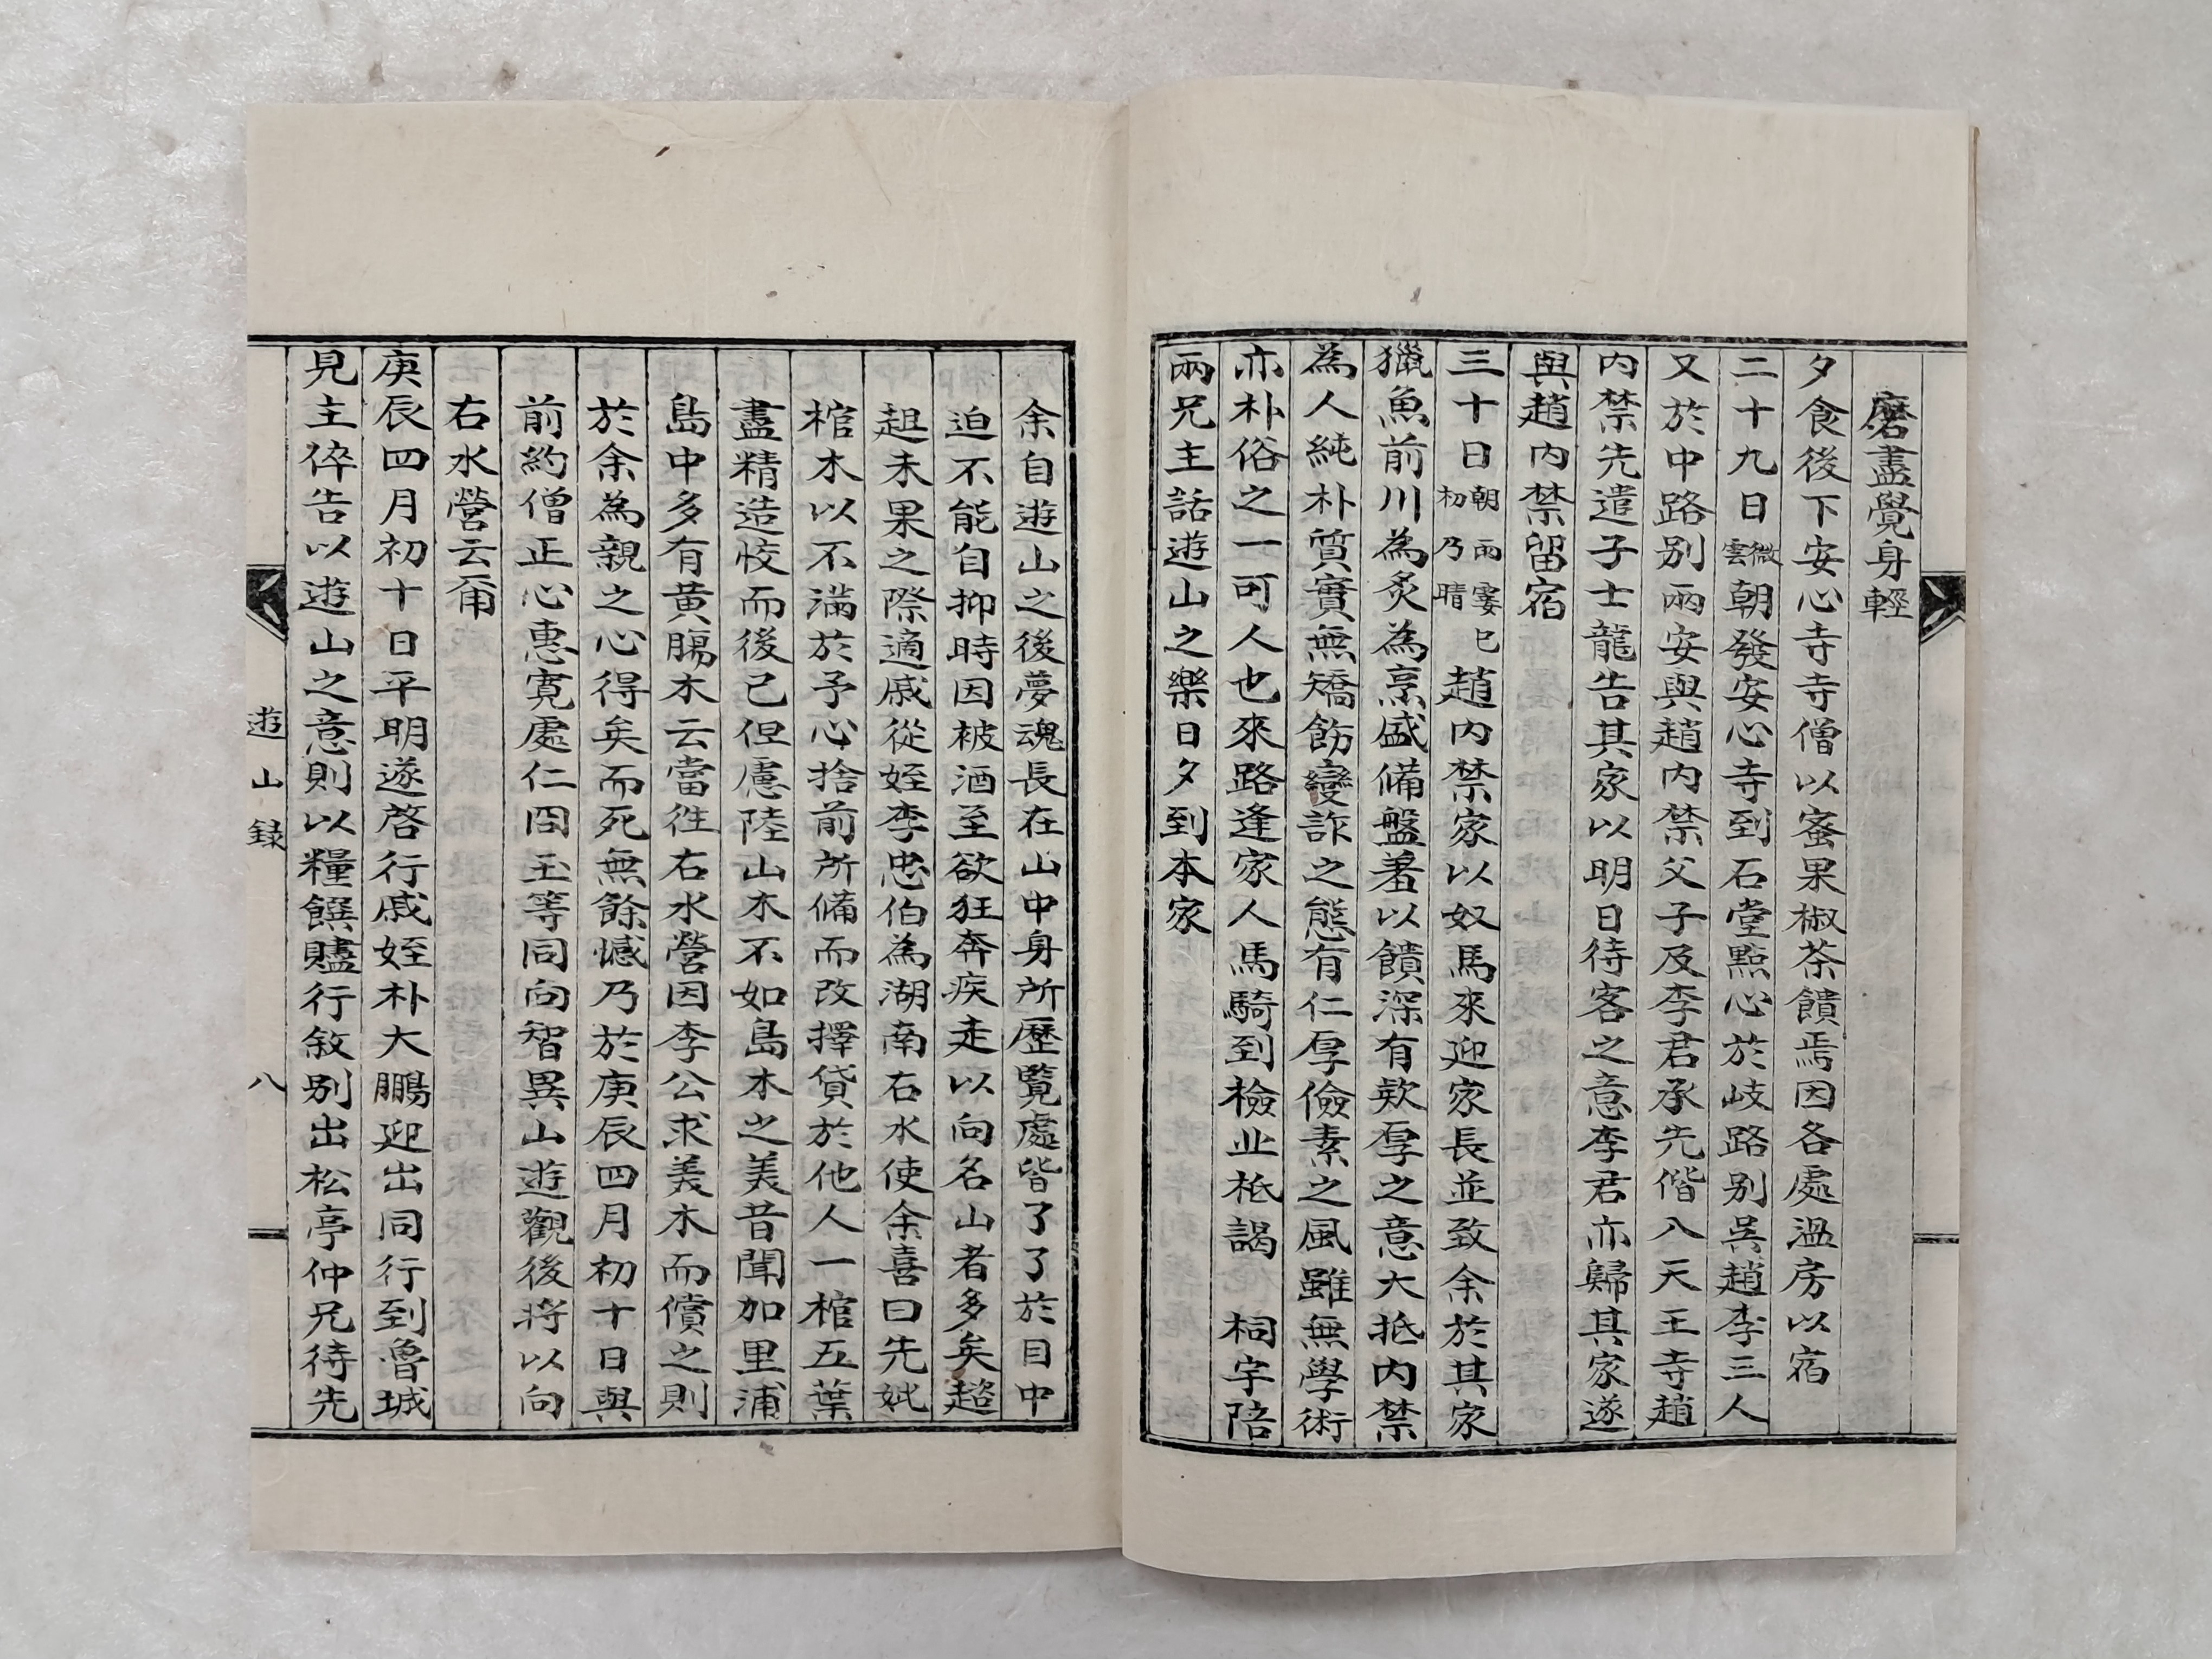 磨盡覺身輕
夕食後下安心寺寺僧以蜜果椒茶饋焉因各處溫房以宿
二十九日微雲朝發安心寺到石堂點心於歧路別吳趙李三人
又於中路別兩安與趙內禁父子及李君承先偕八天王寺趙
內禁先遣子士龍告其家以明日待客之意李君亦歸其家遂
與趙內禁留宿
三十日朝雨霎巳初乃晴趙內禁家以奴馬來迎家長並致余於其家
獵魚前川為炙為烹盛備盤羞以饋深有欵厚之意大抵內禁
為人純朴質實無矯飭變詐之態有仁厚儉素之風雖無學術
亦朴俗之一可人也來路逢家人馬騎到檢止柢謁 祠宇陪
兩兄主話遊山之樂日夕到本家
余自遊山之後夢魂長在山中身所歷覽處皆了了於目中
迫不能自抑時因被酒至欲狂奔疾走以向名山者多矣趑
趄未果之際適戚從姪李忠伯為湖南右水使余喜曰先妣
棺木以不滿於予心捨前所備而改擇貸於他人一棺五葉
盡精造恔而後已但慮陸山木不如島木之美昔聞加里浦
島中多有黃膓木云當徃右水營因李公求美木而償之則
於余為親之心得矣而死無餘憾乃於庚辰四月初十日與
前約僧正心惠寬處仁冏玉等同向智異山遊觀後將以向
右水營云甭
庚辰四月初十日平明遂啓行行戚姪朴大鵬迎出同行到魯城
見主倅告以遊山之意則以糧饌贐行敘別出松亭仲兄待先
遊山録 八